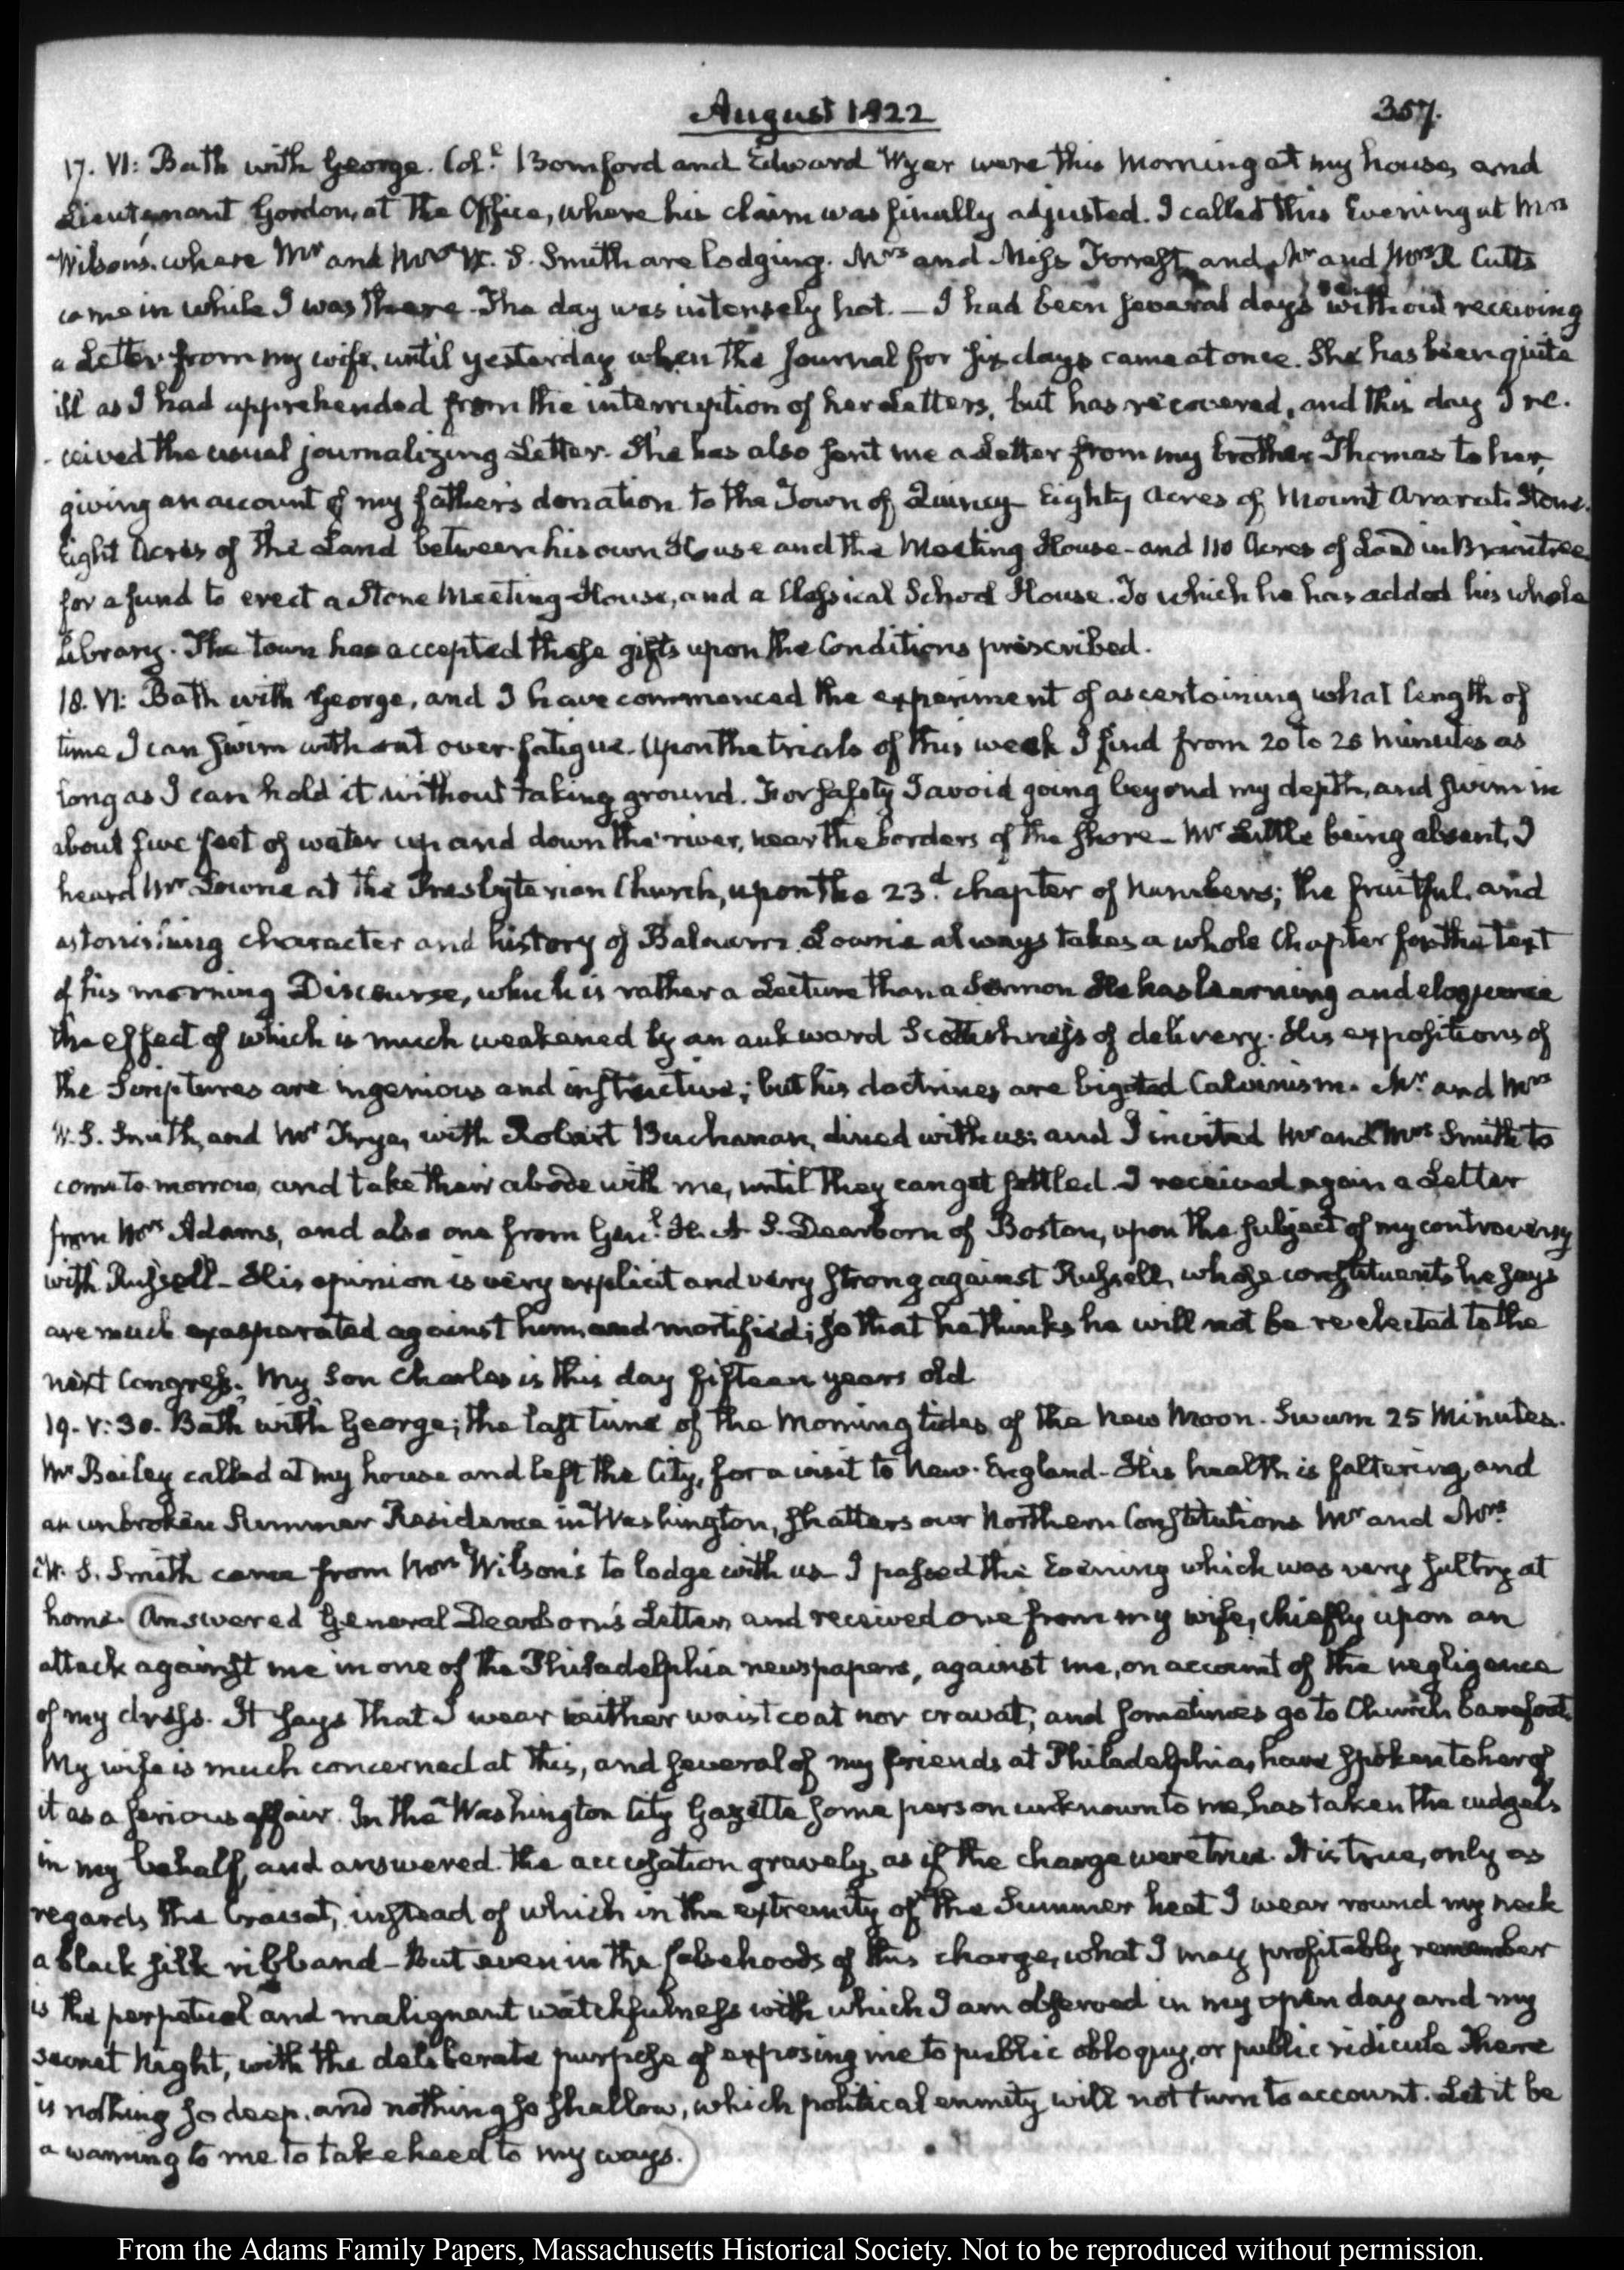 August 1822 357.
17. VI: Bath with George. Coll. Bomford and Edward Wyer were this Morning at my house, and
Lieutenant Gordon, at the Office, where his claim was finally adjusted. I called this Evening at Mrs
Wilson's, where Mr and Mrs W. S. Smith are lodging. Mrs and Miss Forrest, and Mr and Mrs R Cutts
came in while I was there. The day was intensely hot. — I had been several days without receiving
a Letter from my wife, until yesterday when the Journal for six days came at once. She has been quite
ill as I had apprehended from the interruption of her Letters, but has recovered, and this day I re-
-ceived the usual journalizing Letter. She has also sent me a Letter from my brother Thomas to her,
giving an account of my father's donation to the Town of Quincy — Eighty Acres of Mount Ararat Stone.
Eight Acres of the Land between his own House and the Meeting House — and 110 Acres of Land in Braintree
for a fund to erect a Stone Meeting-House, and a Classical School House. To which he has added his whole
Library. The town has accepted these gifts upon the Conditions prescribed.
18. VI: Bath with George, and I have commenced the experiment of ascertaining what length of
time I can swim without over-fatigue. Upon the trials of this week I find from 20 to 25 minutes as
long as I can hold it without taking ground. For safety I avoid going beyond my depth, and swim in
about five feet of water up and down the river, near the borders of the shore — Mr Little being absent, I
heard Mr Lowrie at the Presbyterian Church, upon the 23d. chapter of Numbers; the fruitful and
astonishing character and history of Balaam. Lowrie always takes a whole Chapter for the text
of his morning Discourse, which is rather a Lecture than a Sermon. He has learning and eloquence
the effect of which is much weakened by an aukward Scottishness of delivery. His expositions of
the Scriptures are ingenious and instructive; but his doctrines are bigoted Calvinism. Mr. and Mrs
W. S. Smith, and Mr Frye, with Robert Buchanan, dined with us; and I invited Mr and Mrs Smith to
come to-morrow, and take their abode with me, until they can get settled. I received again a Letter
from Mrs Adams, and also one from Genl. H. A S. Dearborn of Boston, upon the subject of my controversy
with Russell — His opinion is very explicit and very strong against Russell, whose constituents he says
are much exasperated against him, and mortified; so that he thinks he will not be re-elected to the
next Congress. My Son Charles is this day fifteen years old
19. V:30. Bath with George; the last time of the Morning tides of the New Moon. Swum 25 Minutes.
Mr Bailey called at my house and left the City, for a visit to New-England — His health is faltering, and
an unbroken Summer Residence in Washington, shatters our Northern Constitutions. Mr and Mrs
W. S. Smith came from Mrs Wilson's to lodge with us — I passed the Evening which was very sultry at
home. (Answered General Dearborn's Letter, and received one from my wife, chiefly upon an
attack against me in one of the Philadelphia newspapers, against me, on account of the negligence
of my dress. It says that I wear neither waistcoat nor cravat, and sometimes go to Church barefoot.
My wife is much concerned at this, and several of my friends at Philadelphia, have spoken to her of
it as a serious affair. In the Washington City Gazette some person unknown to me, has taken the cudgels
in my behalf, and answered the accusation gravely, as if the charge were true. It is true, only as
regards the Cravat, instead of which in the extremity of the Summer heat I wear round my neck
a black silk ribband — But even in the falsehoods of this charge, what I may profitably remember
is the perpetual and malignant watchfulness with which I am observed in my open day and my
secret Night, with the deliberate purpose of exposing me to public obloquy, or public ridicule. There
is nothing so deep, and nothing so shallow, which political enmity will not turn to account. Let it be
a warning to me to take heed to my ways.)
From the Adams Family Papers, Massachusetts Historical Society. Not to be reproduced without permission.